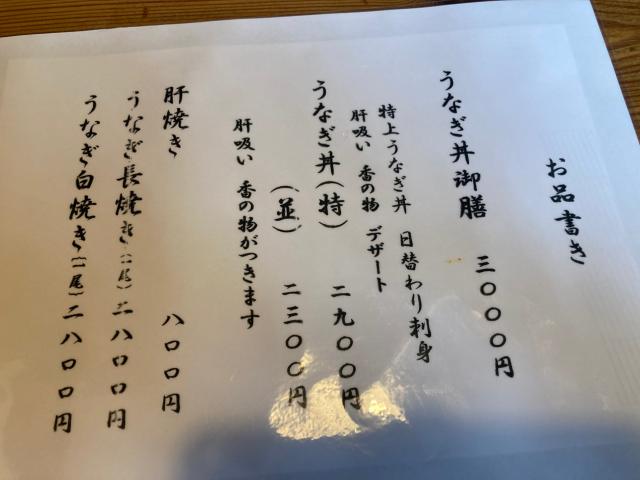 お品書き
うなぎ丼御膳 三〇〇〇円
特上うなぎ丼 日替わり刺身
肝吸い 香の物 デザート
うなぎ丼(特) 二九〇〇円
(並) 二三〇〇円
肝吸い 香の物がつきます
肝焼き 八〇〇円
うなぎ長焼き(一尾) 二八〇〇円
うなぎ白焼き(一尾) 二八〇〇円